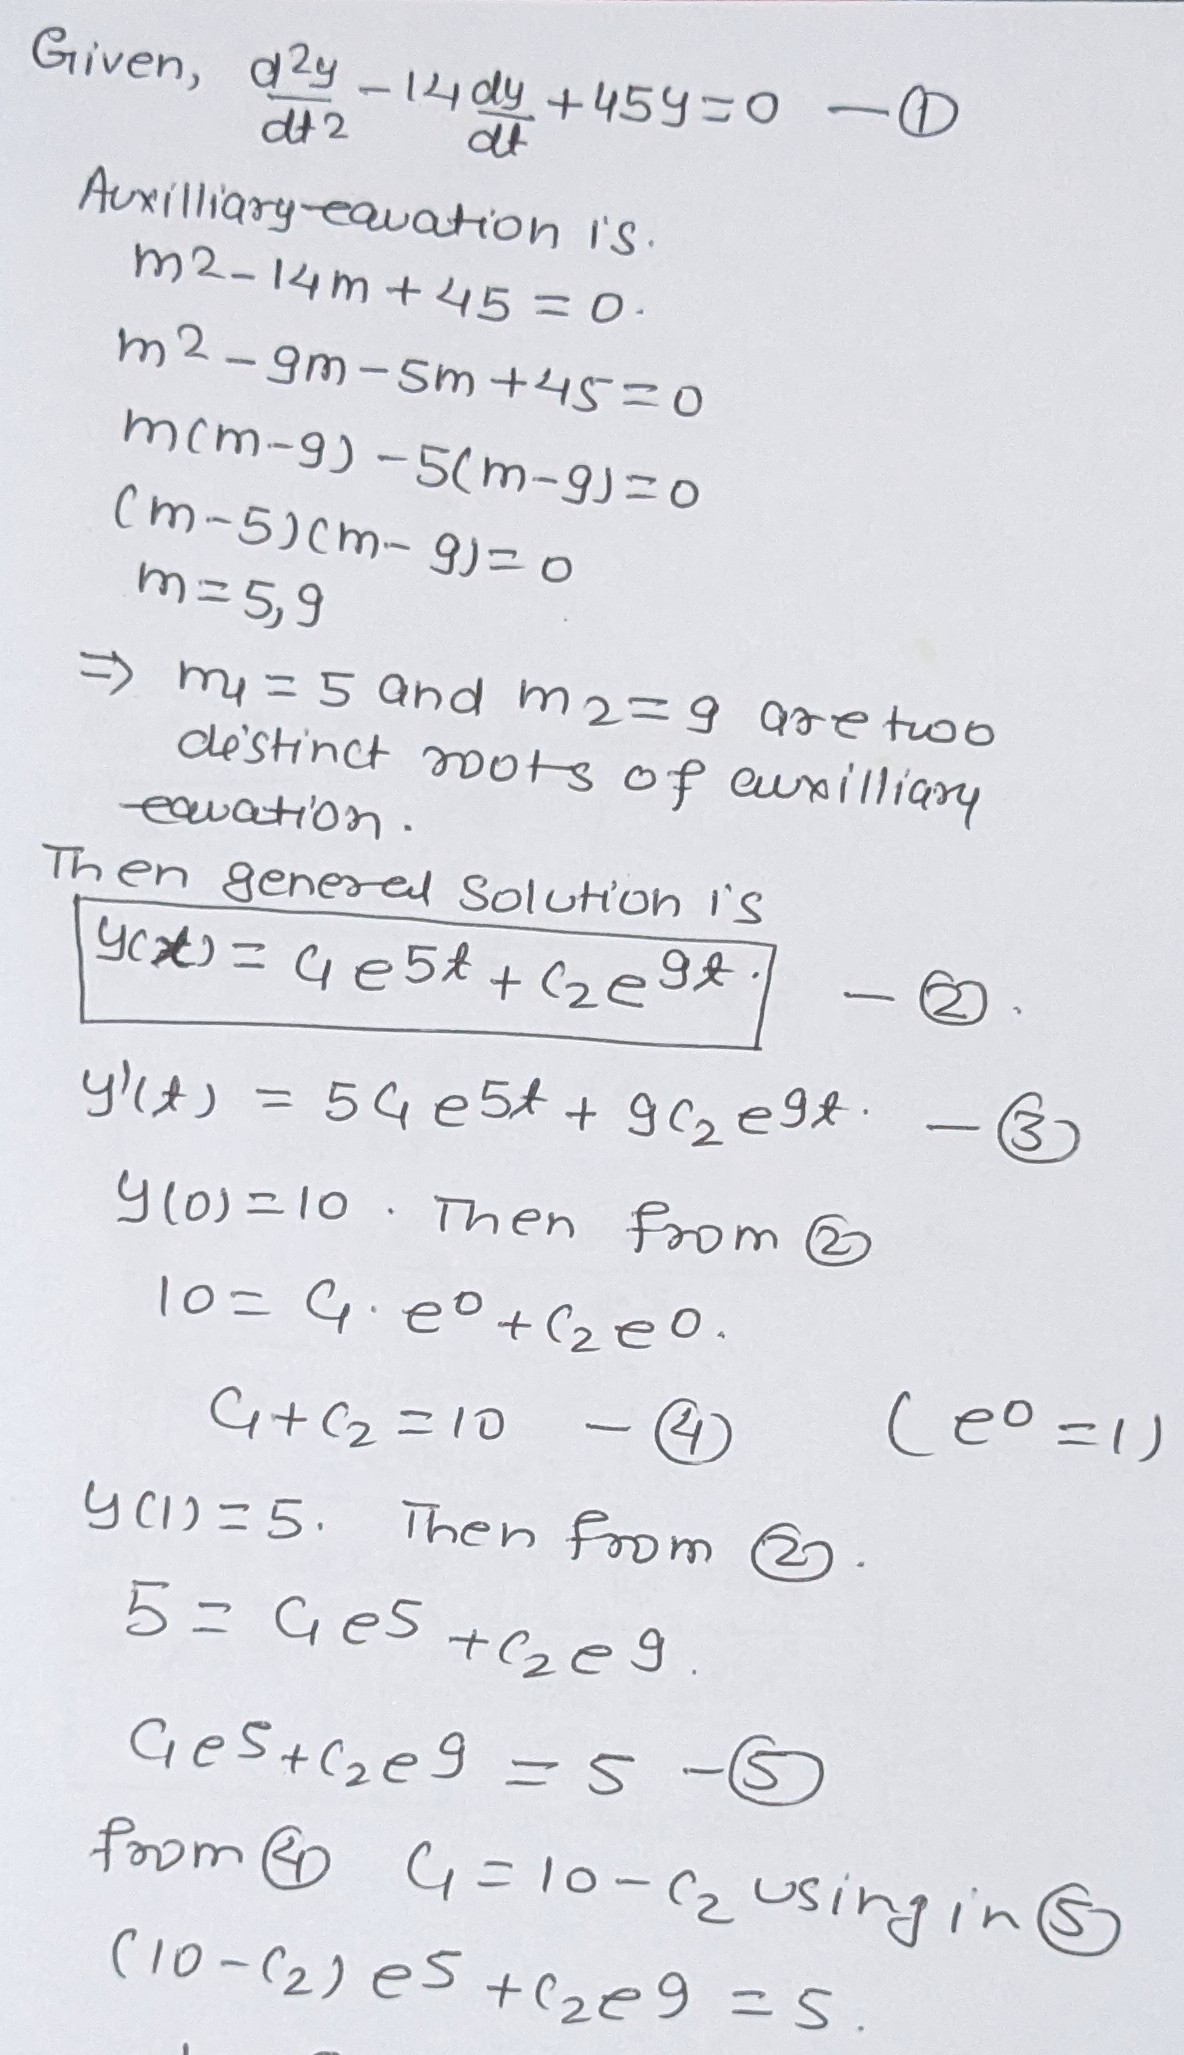 Given, d²y/dt² - 14 dy/dt + 45y = 0 — ①
Auxilliary equation is.
m² - 14m + 45 = 0.
m² - 9m - 5m + 45 = 0
m(m-9) - 5(m-9) = 0
(m-5)(m-9) = 0
m = 5, 9
⇒ m₁ = 5 and m₂ = 9 are two
distinct roots of auxilliary
equation.
Then general solution is
y(t) = c₁e⁵ᵗ + c₂e⁹ᵗ. — ②.
y'(t) = 5c₁e⁵ᵗ + 9c₂e⁹ᵗ. — ③
y(0) = 10. Then from ②
10 = c₁·e⁰ + c₂e⁰.
c₁ + c₂ = 10 — ④ (e⁰ = 1)
y(1) = 5. Then from ②.
5 = c₁e⁵ + c₂e⁹.
c₁e⁵ + c₂e⁹ = 5 — ⑤
from ④ c₁ = 10 - c₂ using in ⑤
(10 - c₂)e⁵ + c₂e⁹ = 5.